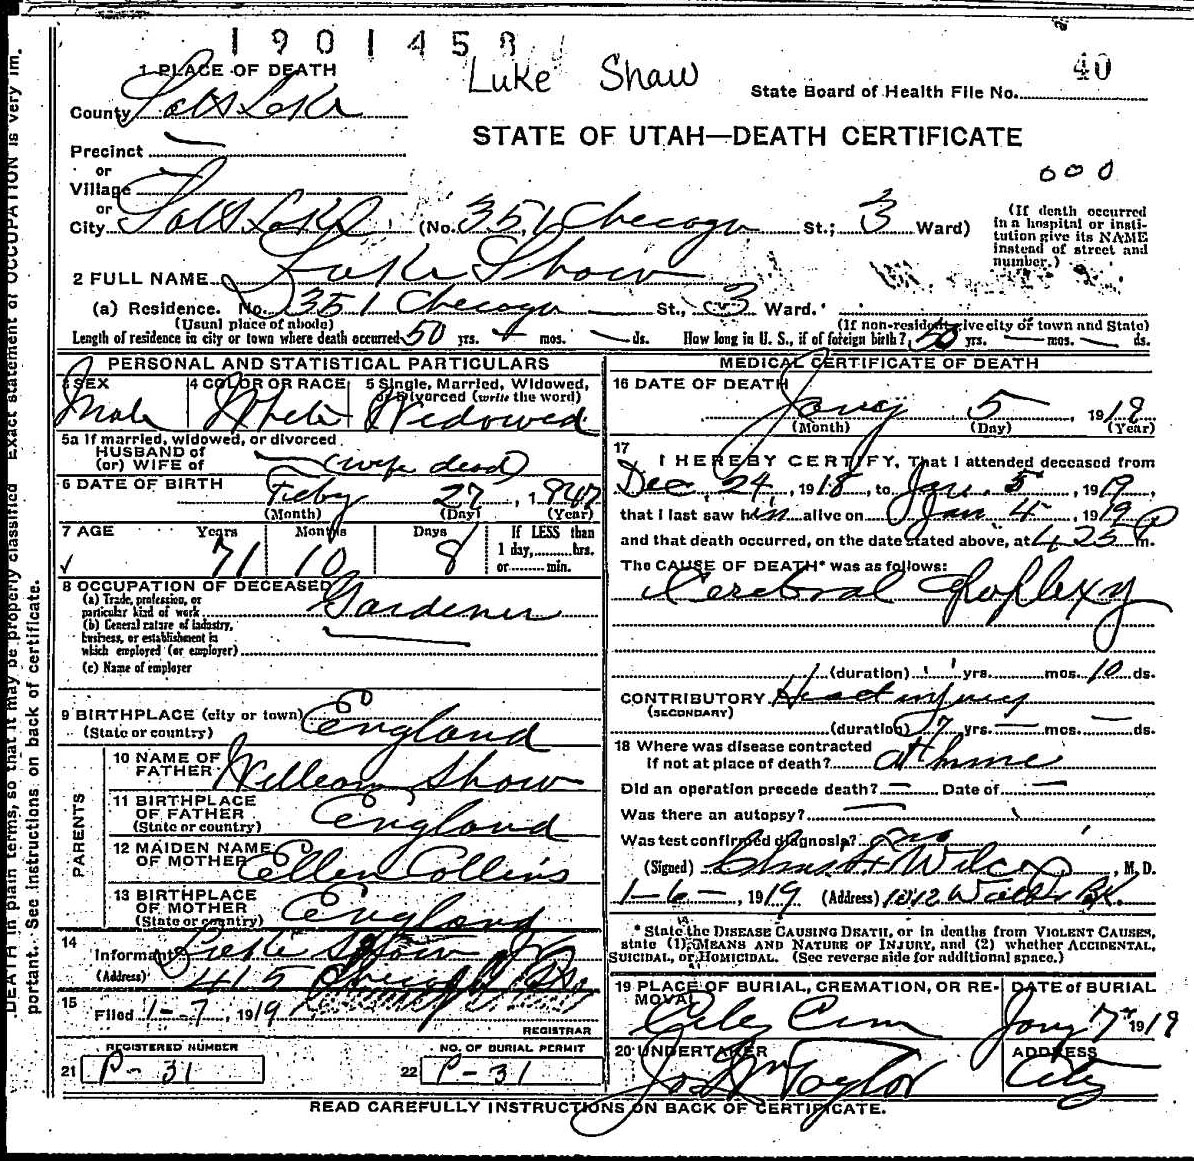 1901458
Luke Shaw
40
1 PLACE OF DEATH
State Board of Health File No.
County Salt Lake
STATE OF UTAH—DEATH CERTIFICATE
Precinct
or
Village
000
or
City Salt Lake (No. 351 Checago St.; 3 Ward)
(If death occurred in a hospital or institution give its NAME instead of street and number.)
2 FULL NAME Luke Shaw
(a) Residence. No. 351 Checago St., 3 Ward.
(Usual place of abode) (If non-resident give city or town and State)
Length of residence in city or town where death occurred 50 yrs. — mos. — ds. How long in U. S., if of foreign birth? 50 yrs. — mos. — ds.
PERSONAL AND STATISTICAL PARTICULARS
3 SEX Male
4 COLOR OR RACE White
5 Single, Married, Widowed, or Divorced (write the word) Widowed
5a If married, widowed, or divorced
HUSBAND of
(or) WIFE of — (wife dead)
6 DATE OF BIRTH Feby 27, 1847
(Month) (Day) (Year)
7 AGE Years 71 Months 10 Days 8
If LESS than 1 day, hrs. or min.
8 OCCUPATION OF DECEASED
(a) Trade, profession, or particular kind of work Gardener
(b) General nature of industry, business, or establishment in which employed (or employer)
(c) Name of employer
9 BIRTHPLACE (city or town) England
(State or country)
PARENTS
10 NAME OF FATHER William Shaw
11 BIRTHPLACE OF FATHER England
(State or country)
12 MAIDEN NAME OF MOTHER Ellen Collins
13 BIRTHPLACE OF MOTHER England
(State or country)
14 Informant Luke Shaw Jr
(Address) 415
15 Filed 1-7, 1919
REGISTRAR
REGISTERED NUMBER
21 P-31
NO. OF BURIAL PERMIT
22 P-31
MEDICAL CERTIFICATE OF DEATH
16 DATE OF DEATH
Jany 5, 1919
(Month) (Day) (Year)
17 I HEREBY CERTIFY, That I attended deceased from
Dec. 24, 1918, to Jan. 5, 1919,
that I last saw him alive on Jan 4, 1919
and that death occurred, on the date stated above, at 4 25 P m.
The CAUSE OF DEATH* was as follows:
Cerebral Apoplexy
(duration) yrs. mos. 10 ds.
CONTRIBUTORY Head injury
(SECONDARY)
(duration) 7 yrs. — mos. — ds.
18 Where was disease contracted
If not at place of death? at home
Did an operation precede death? — Date of —
Was there an autopsy? —
Was test confirmed diagnosis? no
(Signed) Chas F Wilcox, M. D.
1-6-, 1919 (Address) 1012 Walker Bk.
* State the DISEASE CAUSING DEATH, or in deaths from VIOLENT CAUSES,
state (1) MEANS AND NATURE OF INJURY, and (2) whether ACCIDENTAL,
SUICIDAL, or HOMICIDAL. (See reverse side for additional space.)
19 PLACE OF BURIAL, CREMATION, OR REMOVAL
City Cem
DATE of BURIAL
Jany 7th 1919
20 UNDERTAKER
Jos Wm Taylor
ADDRESS
City
READ CAREFULLY INSTRUCTIONS ON BACK OF CERTIFICATE.
DEATH in plain terms, so that it may be properly classified Exact statement of OCCUPATION is very im.
portant. See instructions on back of certificate.